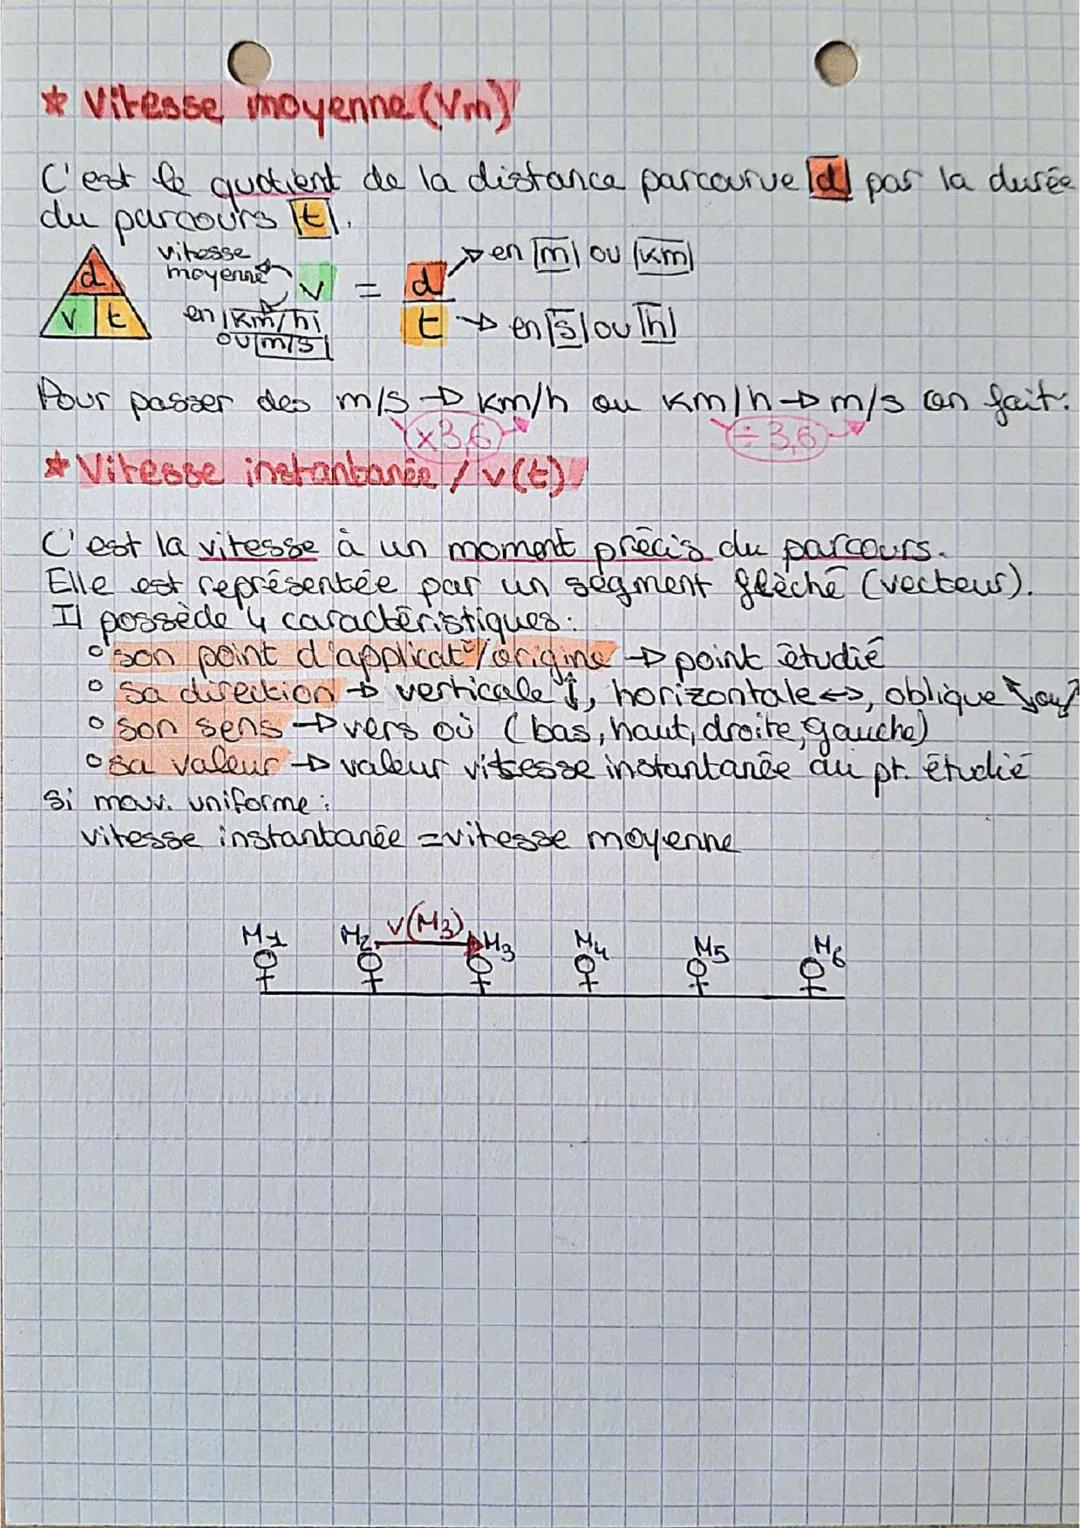 * Vitesse moyenne (Vm)
C'est le quotient de la distance parcourue d par la durée
du parcours t.
d
v t
vitesse
moyenne
v = d/t
en km/h
ou m/s
en m ou km
en s ou h
Pour passer des m/s → km/h ou km/h → m/s on fait:
×3,6 ÷3,6
* Vitesse instantanée / v(t)
C'est la vitesse à un moment précis du parcours.
Elle est représentée par un segment flèché (vecteur).
Il possède 4 caractéristiques:
° son point d'applicat°/origine → point étudié
° sa direction → verticale ↕, horizontale ↔, oblique ↖ ou ↗
° son sens → vers où (bas, haut, droite, gauche)
° sa valeur → valeur vitesse instantanée du pt. étudié
si mouv. uniforme:
vitesse instantanée = vitesse moyenne
v(M3)
M1 M2 M3 M4 M5 M6